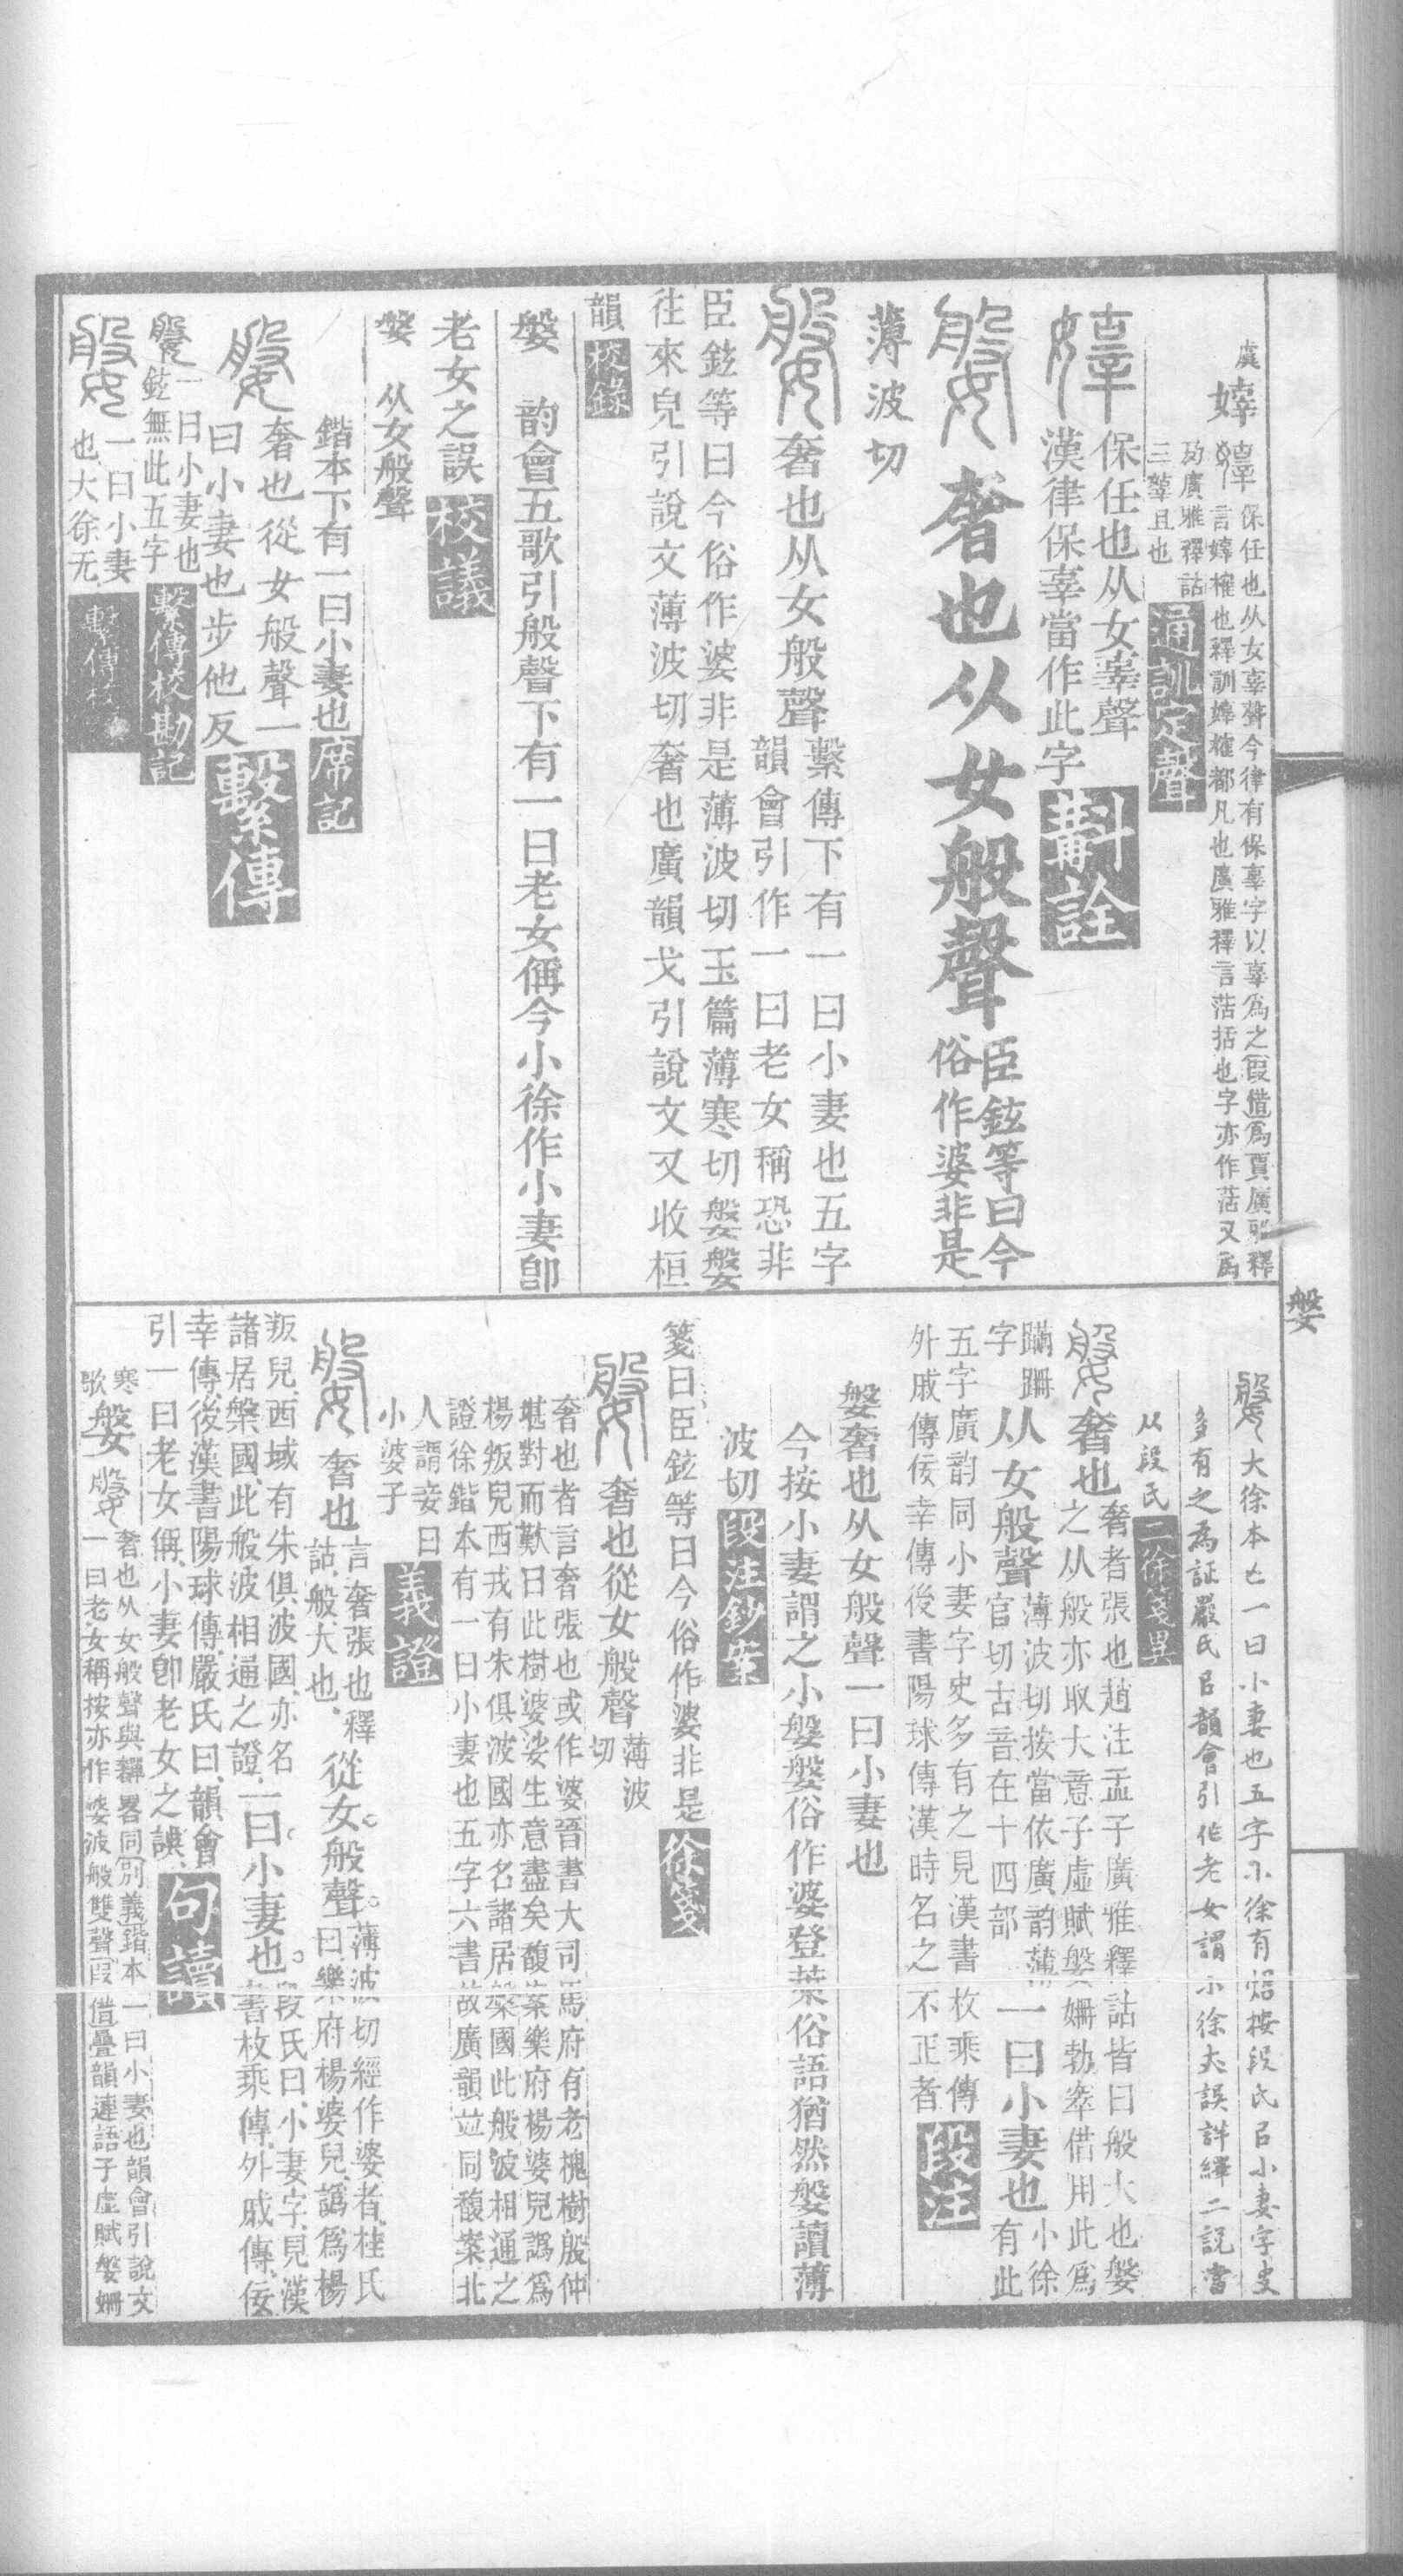 虞
嫴
嫴保任也从女辜聲今律有保辜字以辜爲之叚借爲賈廣雅釋
言嫴榷也釋訓嫴榷都凡也廣雅釋言䓇括也字亦作䓇又爲
劫廣雅釋詁
三辜且也
通訓定聲
嫴
保任也从女辜聲
漢律保辜當作此字
斠詮
媻
奢也从女般聲
臣鉉等曰今
俗作婆非是
薄波切
媻
奢也从女般聲
繫傳下有一曰小妻也五字
韻會引作一曰老女稱恐非
臣鉉等曰今俗作婆非是薄波切玉篇薄寒切媻媻
往來皃引說文薄波切奢也廣韻戈引說文又收桓
韻
校錄
媻
韵會五歌引般聲下有一曰老女偁今小徐作小妻卽
老女之誤
校議
媻
从女般聲
鍇本下有一曰小妻也
席記
媻
奢也從女般聲一
曰小妻也步他反
繫傳
媻
一曰小妻也
鉉無此五字
繫傳校勘記
媻
一曰小妻
也大徐无
媻
媻
大徐本亡一曰小妻也五字小徐有焰按段氏㠯小妻字史
多有之爲証嚴氏㠯韻會引作老女謂小徐夫誤詳繹二説當
从段氏
二徐箋異
媻
奢也
奢者張也趙注孟子廣雅釋詁皆曰般大也媻
之从般亦取大意子虛賦媻姍勃窣借用此爲
蹣跚
字
从女般聲
薄波切按當依廣韵薄
官切古音在十四部
一曰小妻也
小徐
有此
五字廣韵同小妻字史多有之見漢書枚乘傳
外戚傳佞幸傳後書陽球傳漢時名之不正者
段注
媻奢也从女般聲一曰小妻也
今按小妻謂之小媻媻俗作婆登萊俗語猶然媻讀薄
波切
段注鈔案
箋曰臣鉉等曰今俗作婆非是
徐箋
媻
奢也從女般聲
薄波
切
奢也者言奢張也或作婆晉書大司馬府有老槐樹殷仲
堪對而歎曰此樹婆娑生意盡矣馥案樂府楊婆兒譌爲
楊叛兒西戎有朱俱波國亦名諸居槃國此般波相通之
證徐鍇本有一曰小妻也五字六書故廣韻竝同馥案北
人謂妾曰
小婆子
義證
媻
奢也
言奢張也釋
詁般大也
從女般聲
薄波切經作婆者桂氏
曰樂府楊婆兒譌爲楊
叛兒西域有朱俱波國亦名
諸居槃國此般波相通之證
一曰小妻也
段氏曰小妻字見漢
書枚乘傳外戚傳佞
幸傳後漢書陽球傳嚴氏曰韻會
引一曰老女偁小妻卽老女之誤
句讀
寒
歌
媻
媻
奢也从女般聲與奲略同別義鍇本一曰小妻也韻會引說文
一曰老女稱按亦作婆波般雙聲叚借疊韻連語子虛賦媻姍